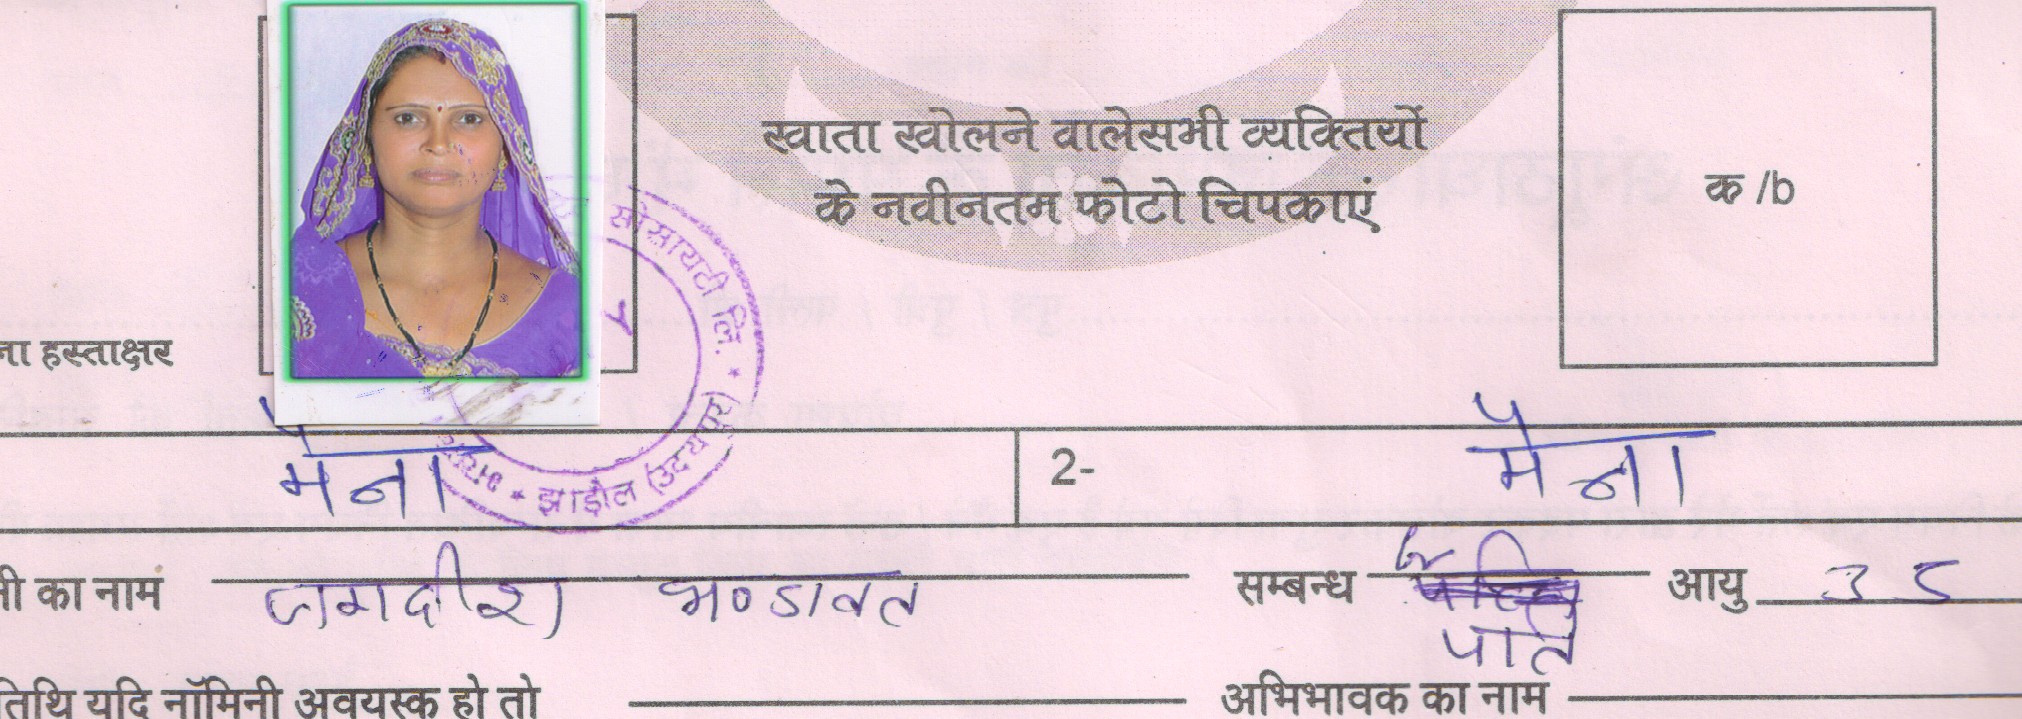 खाता खोलने वालेसभी व्यक्तियों
के नवीनतम फोटो चिपकाएं
क /b
ना हस्ताक्षर
सोसायटी लि. * झाड़ोल (उदयपुर) *
मैना
2- मैना
का नाम जगदीश भण्डावत सम्बन्ध पति आयु 35
तिथि यदि नॉमिनी अवयस्क हो तो अभिभावक का नाम